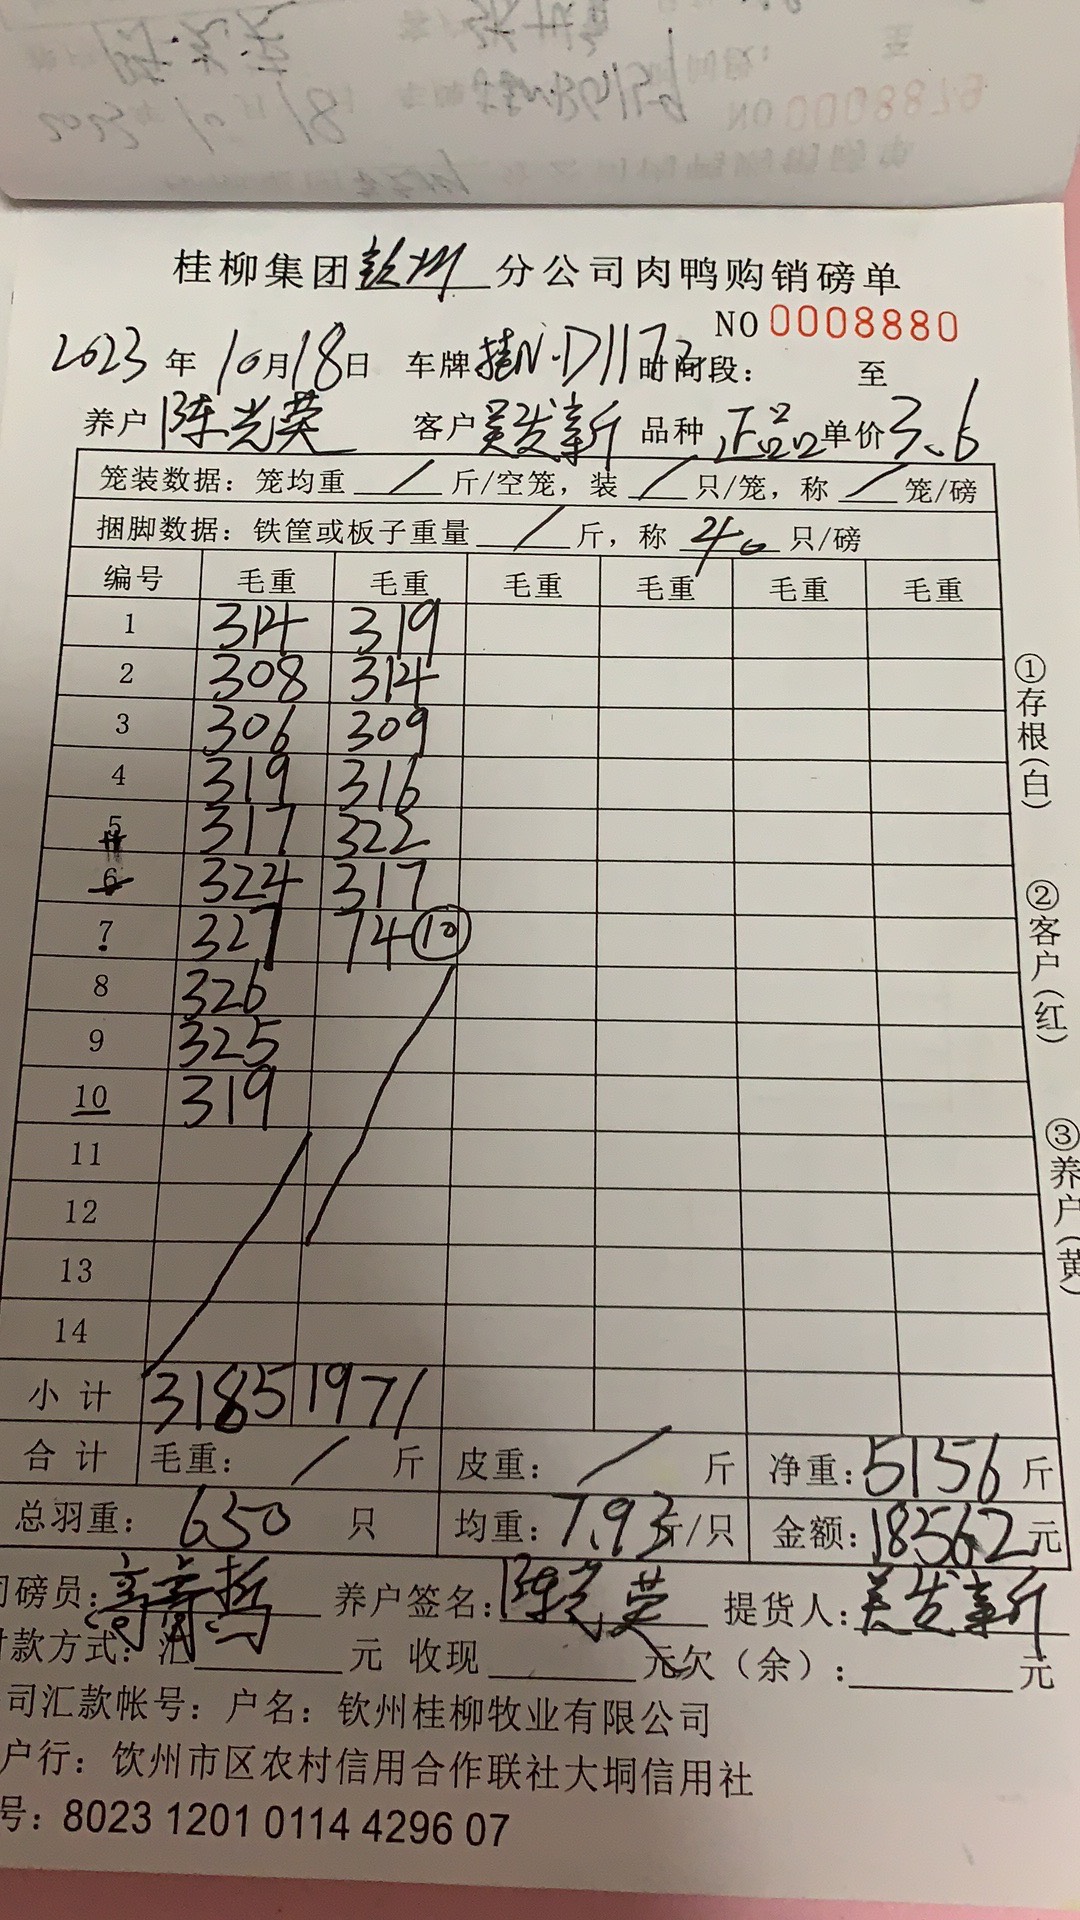 桂柳集团钦州分公司肉鸭购销磅单
NO 0008880
2023年10月18日 车牌桂N·D1173 时间段: 至
养户 陈光荣 客户 吴发新 品种 正品 单价 3.6
笼装数据: 笼均重 / 斤/空笼, 装 / 只/笼, 称 / 笼/磅
捆脚数据: 铁筐或板子重量 / 斤, 称 40 只/磅
编号 毛重 毛重 毛重 毛重 毛重 毛重
1 314 319
2 308 314
3 306 309
4 319 316
5 317 322
6 324 317
7 327 74 ⑩
8 326
9 325
10 319
11
12
13
14
小计 3185 1971
合计 毛重: / 斤 皮重: / 斤 净重: 5156 斤
总羽重: 650 只 均重: 7.93 斤/只 金额: 18562 元
司磅员: 养户签名: 陈光荣 提货人: 吴发新
付款方式: 汇 元 收现 元 欠(余): 元
司汇款帐号: 户名: 钦州桂柳牧业有限公司
户行: 钦州市区农村信用合作联社大垌信用社
号: 8023 1201 0114 4296 07
①存根(白)
②客户(红)
③养户(黄)